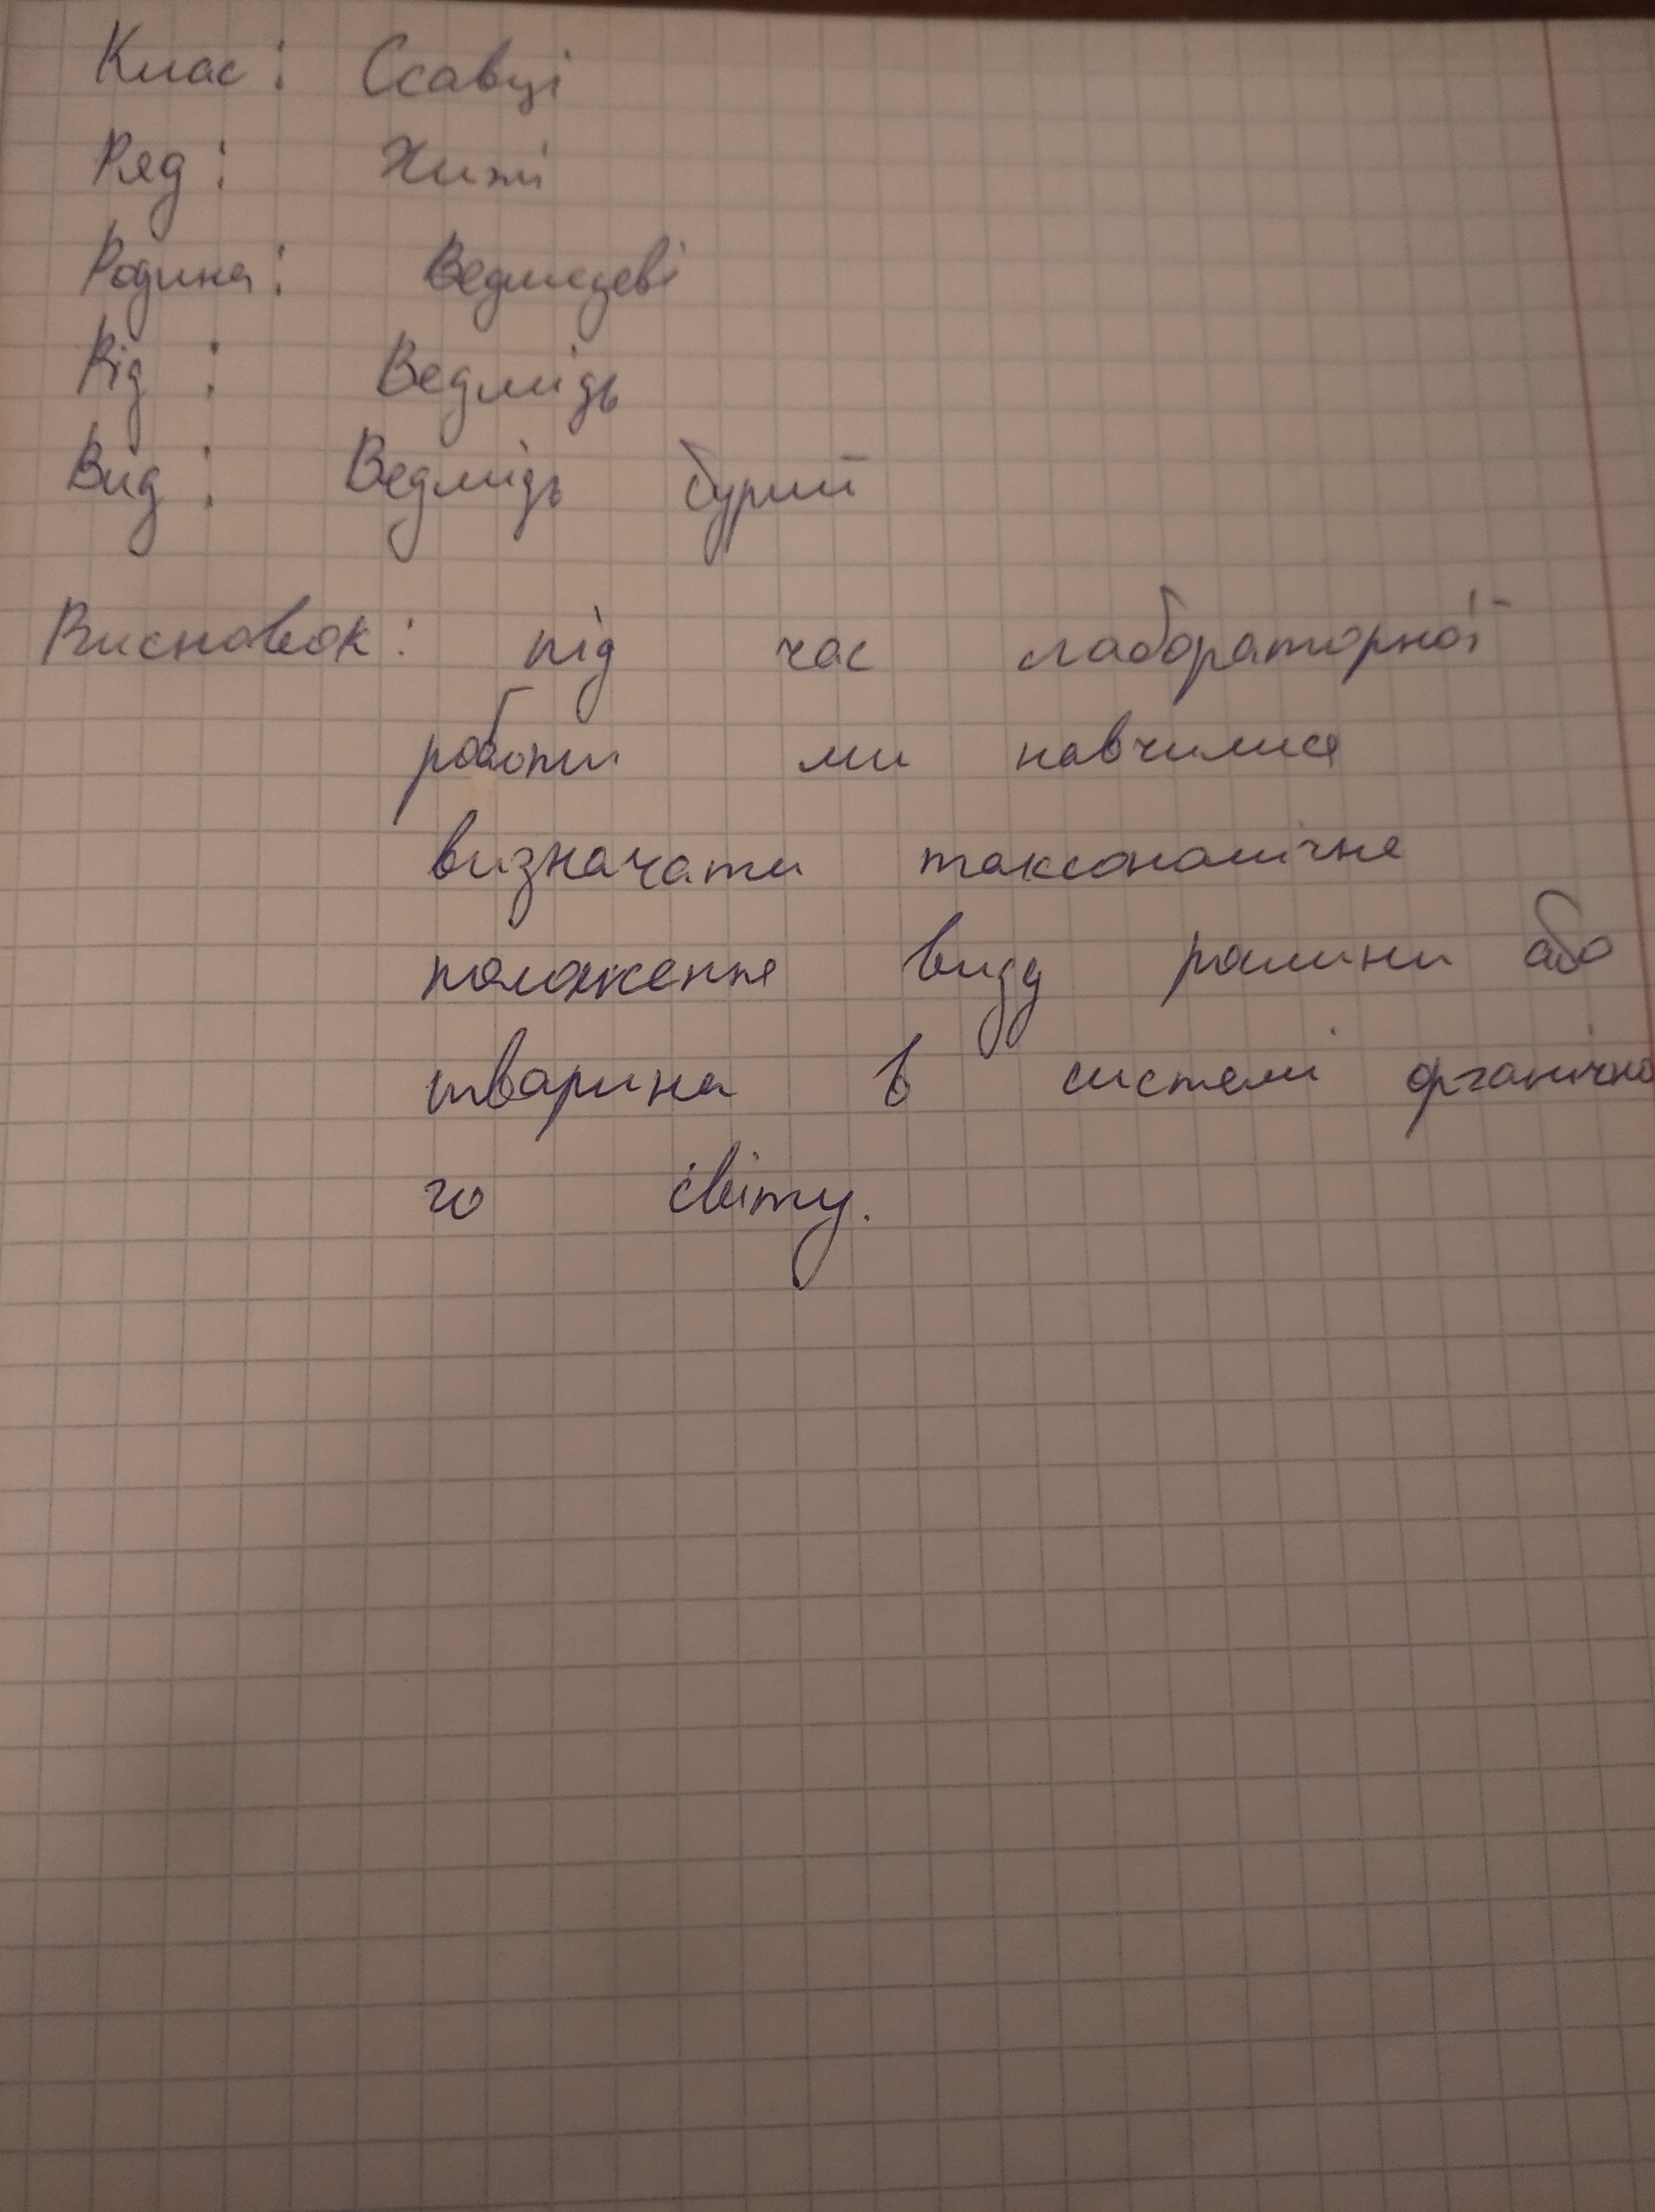 Клас: Ссавці
Ряд: Хижі
Родина: Ведмедеві
Рід: Ведмідь
Вид: Ведмідь бурий
Висновок: під час лабораторної
роботи ми навчилися
визначати таксономічне
положення виду рослини або
тварина в системі органічно
го світу.